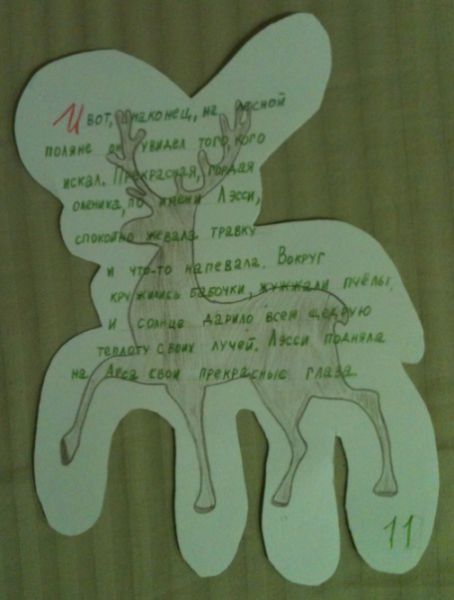 И вот, наконец, на лесной
поляне он увидел того, кого
искал. Прекрасная, гордая
олениха, по имени Лэсси,
спокойно жевала травку
и что-то напевала. Вокруг
кружились бабочки, жужжали пчёлы,
и солнце дарило всем щедрую
теплоту своих лучей. Лэсси подняла
на Леса свои прекрасные глаза
11